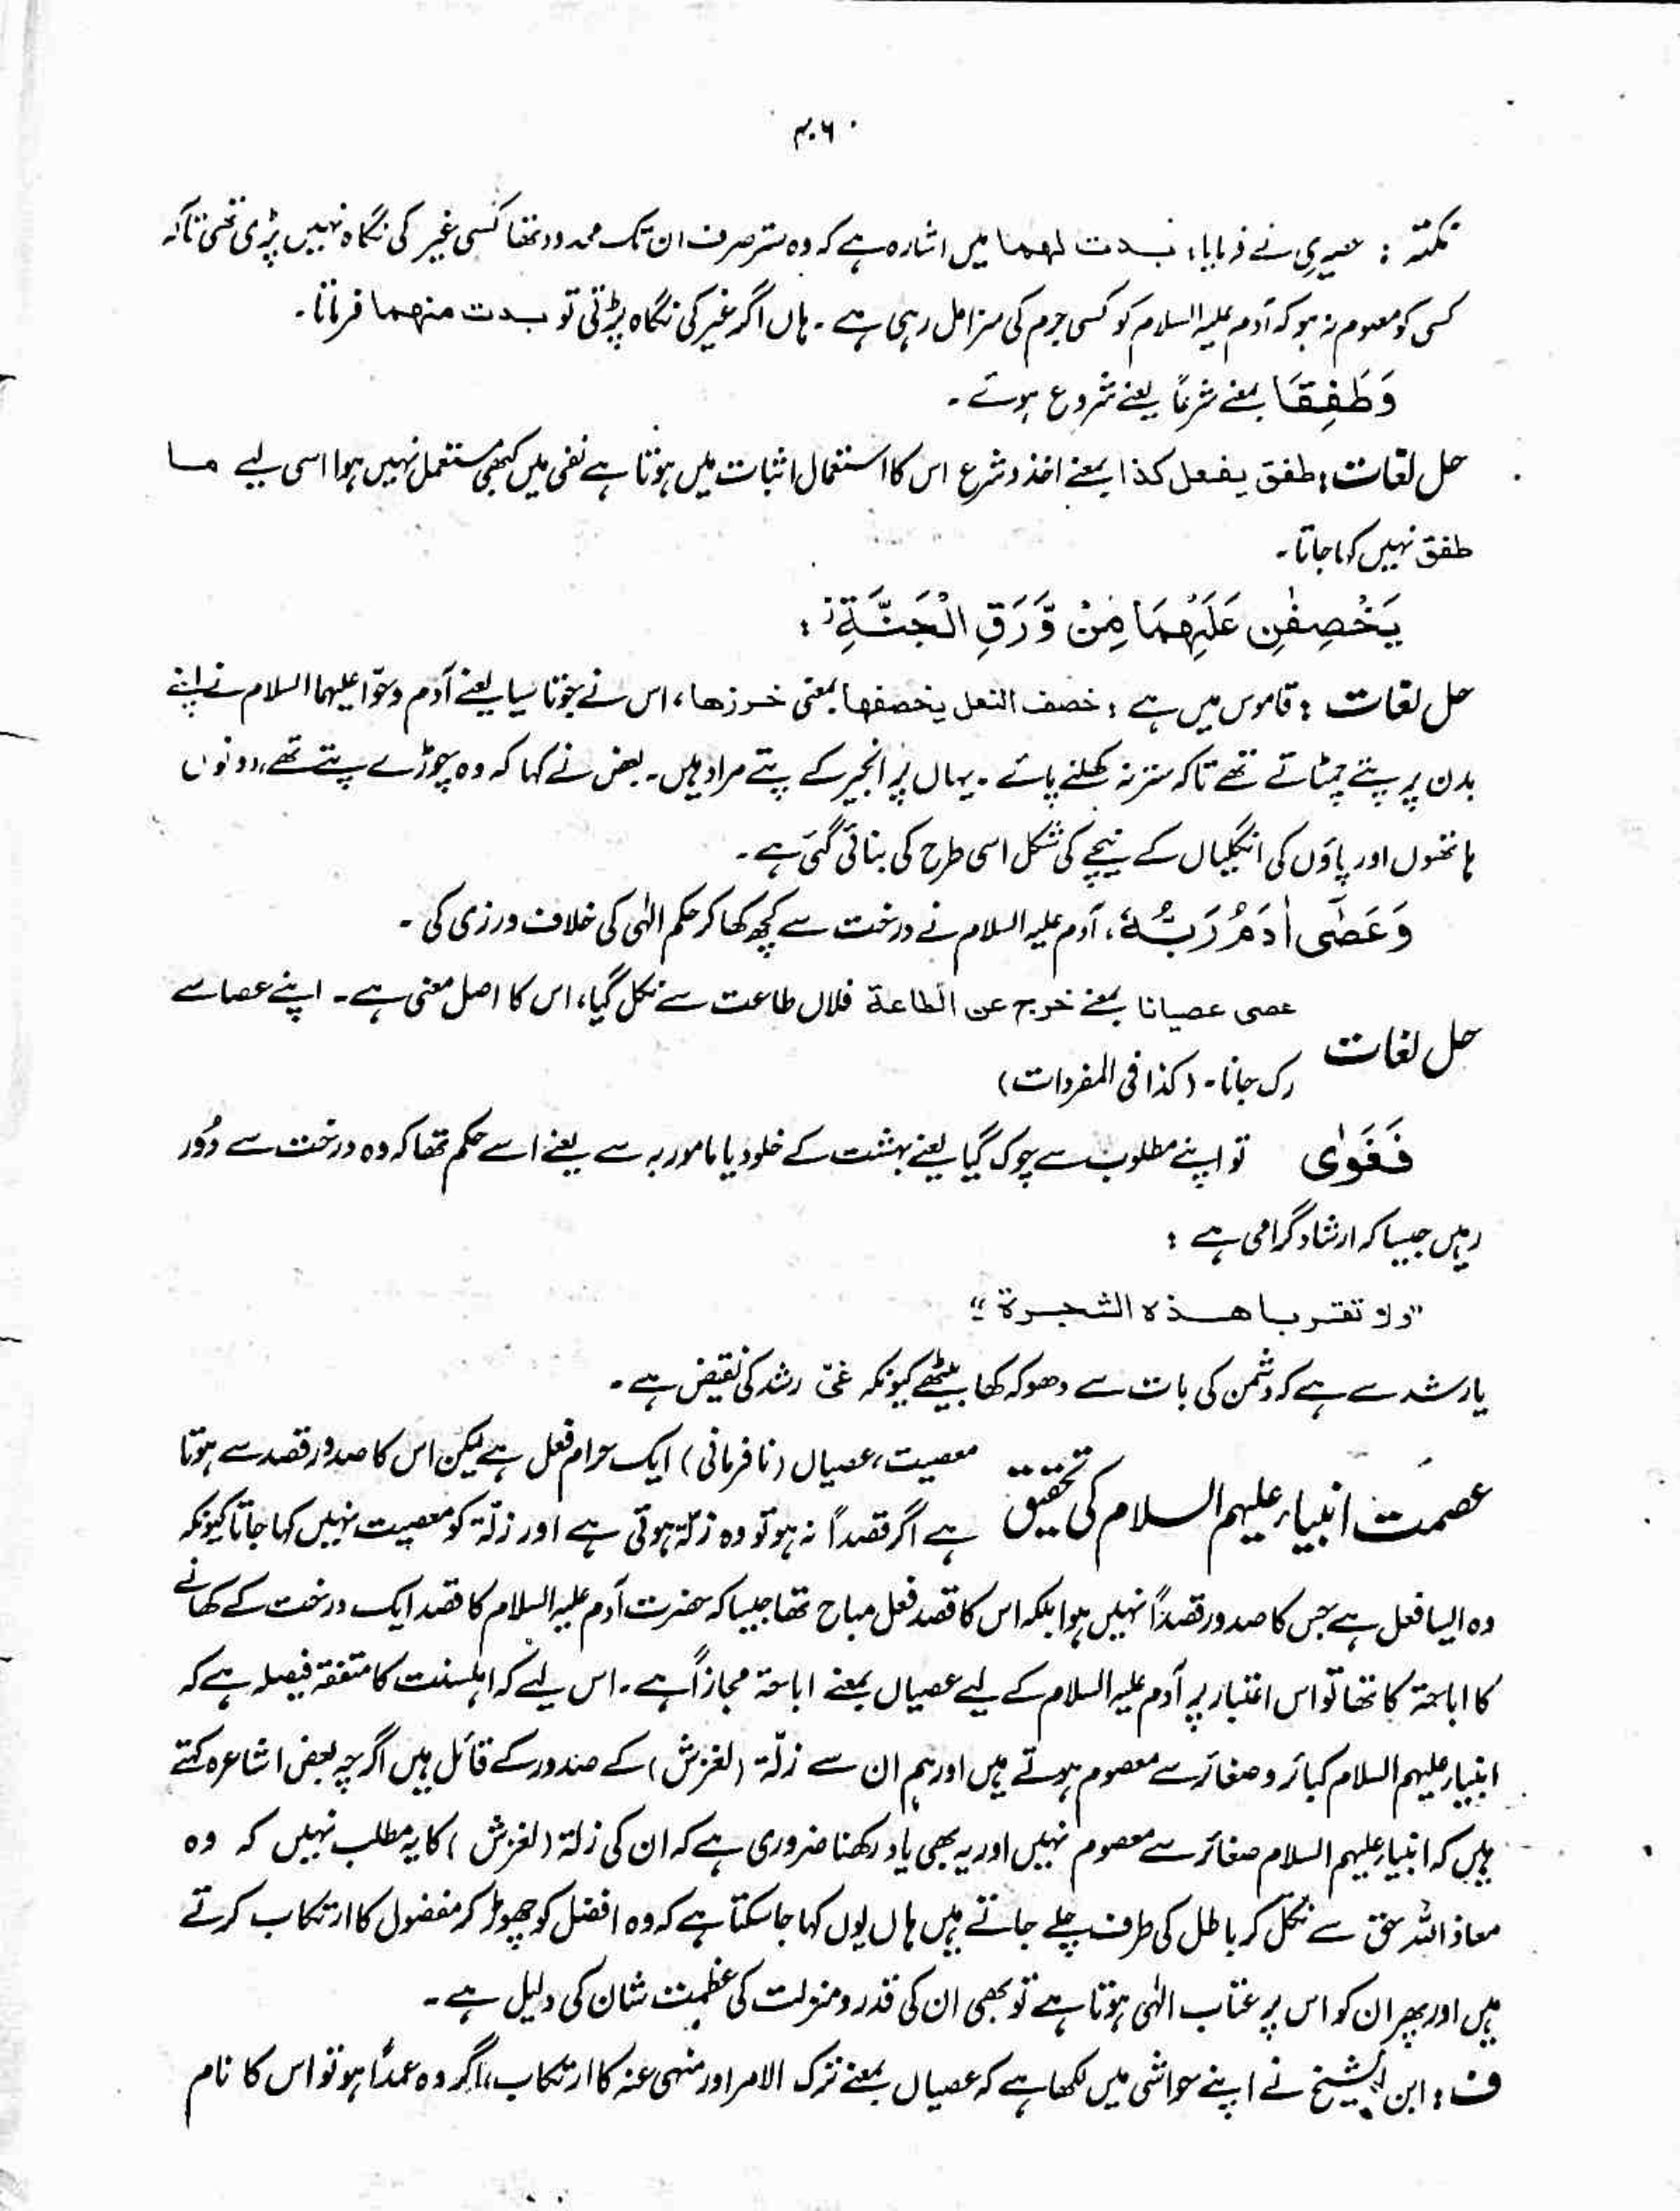 ۴۰۶
نکتہ : حصیری نے فرمایا، فبدت لھما میں اشارہ ہے کہ وہ ستر صرف ان تک محدود تھا کسی غیر کی نگاہ نہیں پڑی تھی تاکہ
کسی کو معلوم نہ ہو کہ آدم علیہ السلام کو کسی جرم کی سزا مل رہی ہے ۔ ہاں اگر غیر کی نگاہ پڑتی تو بدت منھما فرماتا ۔
وَطَفِقَا بمعنے شرعًا یعنے شروع ہوئے ۔
حل لغات : طفق یفعل کذا بمعنے اخذ و شرع اس کا استعمال اثبات میں ہوتا ہے نفی میں کبھی مستعمل نہیں ہوا اسی لیے ما
طفق نہیں کہا جاتا ۔
یَخْصِفٰنِ عَلَیْھِمَا مِنْ وَّرَقِ الْجَنَّةِ ز :
حل لغات : قاموس میں ہے : خصف النعل یخصفھا بمعنی خرزھا ، اس نے جوتا سیا یعنے آدم و حوّا علیہما السلام نے اپنے
بدن پر پتے چمٹاتے تھے تاکہ ستر نہ کھلنے پائے ۔ یہاں پر انجیر کے پتے مراد ہیں ۔ بعض نے کہا کہ وہ چوڑے پتے تھے ، دونوں
ہاتھوں اور پاؤں کی انگلیاں کے نیچے کی شکل اسی طرح کی بنائی گئی ہے ۔
وَعَصٰٓی اٰدَمُ رَبَّہٗ ، آدم علیہ السلام نے درخت سے کچھ کھا کر حکم الٰہی کی خلاف ورزی کی ۔
حل لغات عصی عصیانا بمعنے خرج عن الطاعة فلاں طاعت سے نکل گیا ، اس کا اصل معنی ہے ۔ اپنے عصا سے
رک جانا ۔ (کذا فی المفردات)
فَغَوٰی تو اپنے مطلوب سے چوک گیا یعنے بہشت کے خلود یا مامور بہ سے یعنے اسے حکم تھا کہ وہ درخت سے دُور
رہیں جیسا کہ ارشاد گرامی ہے :
"ولا تقربا ھذہ الشجرة"
یا رشد سے ہے کہ دشمن کی بات سے دھوکہ کھا بیٹھے کیونکہ غیّ رشد کی نقیض ہے ۔
عصمت انبیاء علیہم السلام کی تحقیق معصیت ، عصیاں (نافرمانی) ایک حرام فعل ہے لیکن اس کا صدور قصد سے ہوتا
ہے اگر قصداً نہ ہو تو وہ زلّۃ ہوتی ہے اور زلّۃ کو معصیت نہیں کہا جاتا کیونکہ
وہ ایسا فعل ہے جس کا صدور قصداً نہیں ہوا بلکہ اس کا قصد فعل مباح تھا جیسا کہ حضرت آدم علیہ السلام کا قصد ایک درخت کے کھانے
کا اباحۃ کا تھا تو اس اعتبار پر آدم علیہ السلام کے لیے عصیاں بمعنے اباحۃ مجازاً ہے ۔ اس لیے کہ اہلسنت کا متفقہ فیصلہ ہے کہ
انبیاء علیہم السلام کبائر و صغائر سے معصوم ہوتے ہیں اور ہم ان سے زلّۃ (لغزش) کے صدور کے قائل ہیں اگرچہ بعض اشاعرہ کہتے
ہیں کہ انبیاء علیہم السلام صغائر سے معصوم نہیں اور یہ بھی یاد رکھنا ضروری ہے کہ ان کی زلۃ (لغزش) کا یہ مطلب نہیں کہ وہ
معاذ اللہ حق سے نکل کر باطل کی طرف چلے جاتے ہیں ہاں یوں کہا جا سکتا ہے کہ وہ افضل کو چھوڑ کر مفضول کا ارتکاب کرتے
ہیں اور پھر ان کو اس پر عتاب الٰہی ہوتا ہے تو بھی ان کی قدر و منزلت کی عظمت شان کی دلیل ہے ۔
ف : ابن الشیخ نے اپنے حواشی میں لکھا ہے کہ عصیاں بمعنے ترک الامر اور منہی عنہ کا ارتکاب ، اگر وہ عمداً ہو تو اس کا نام